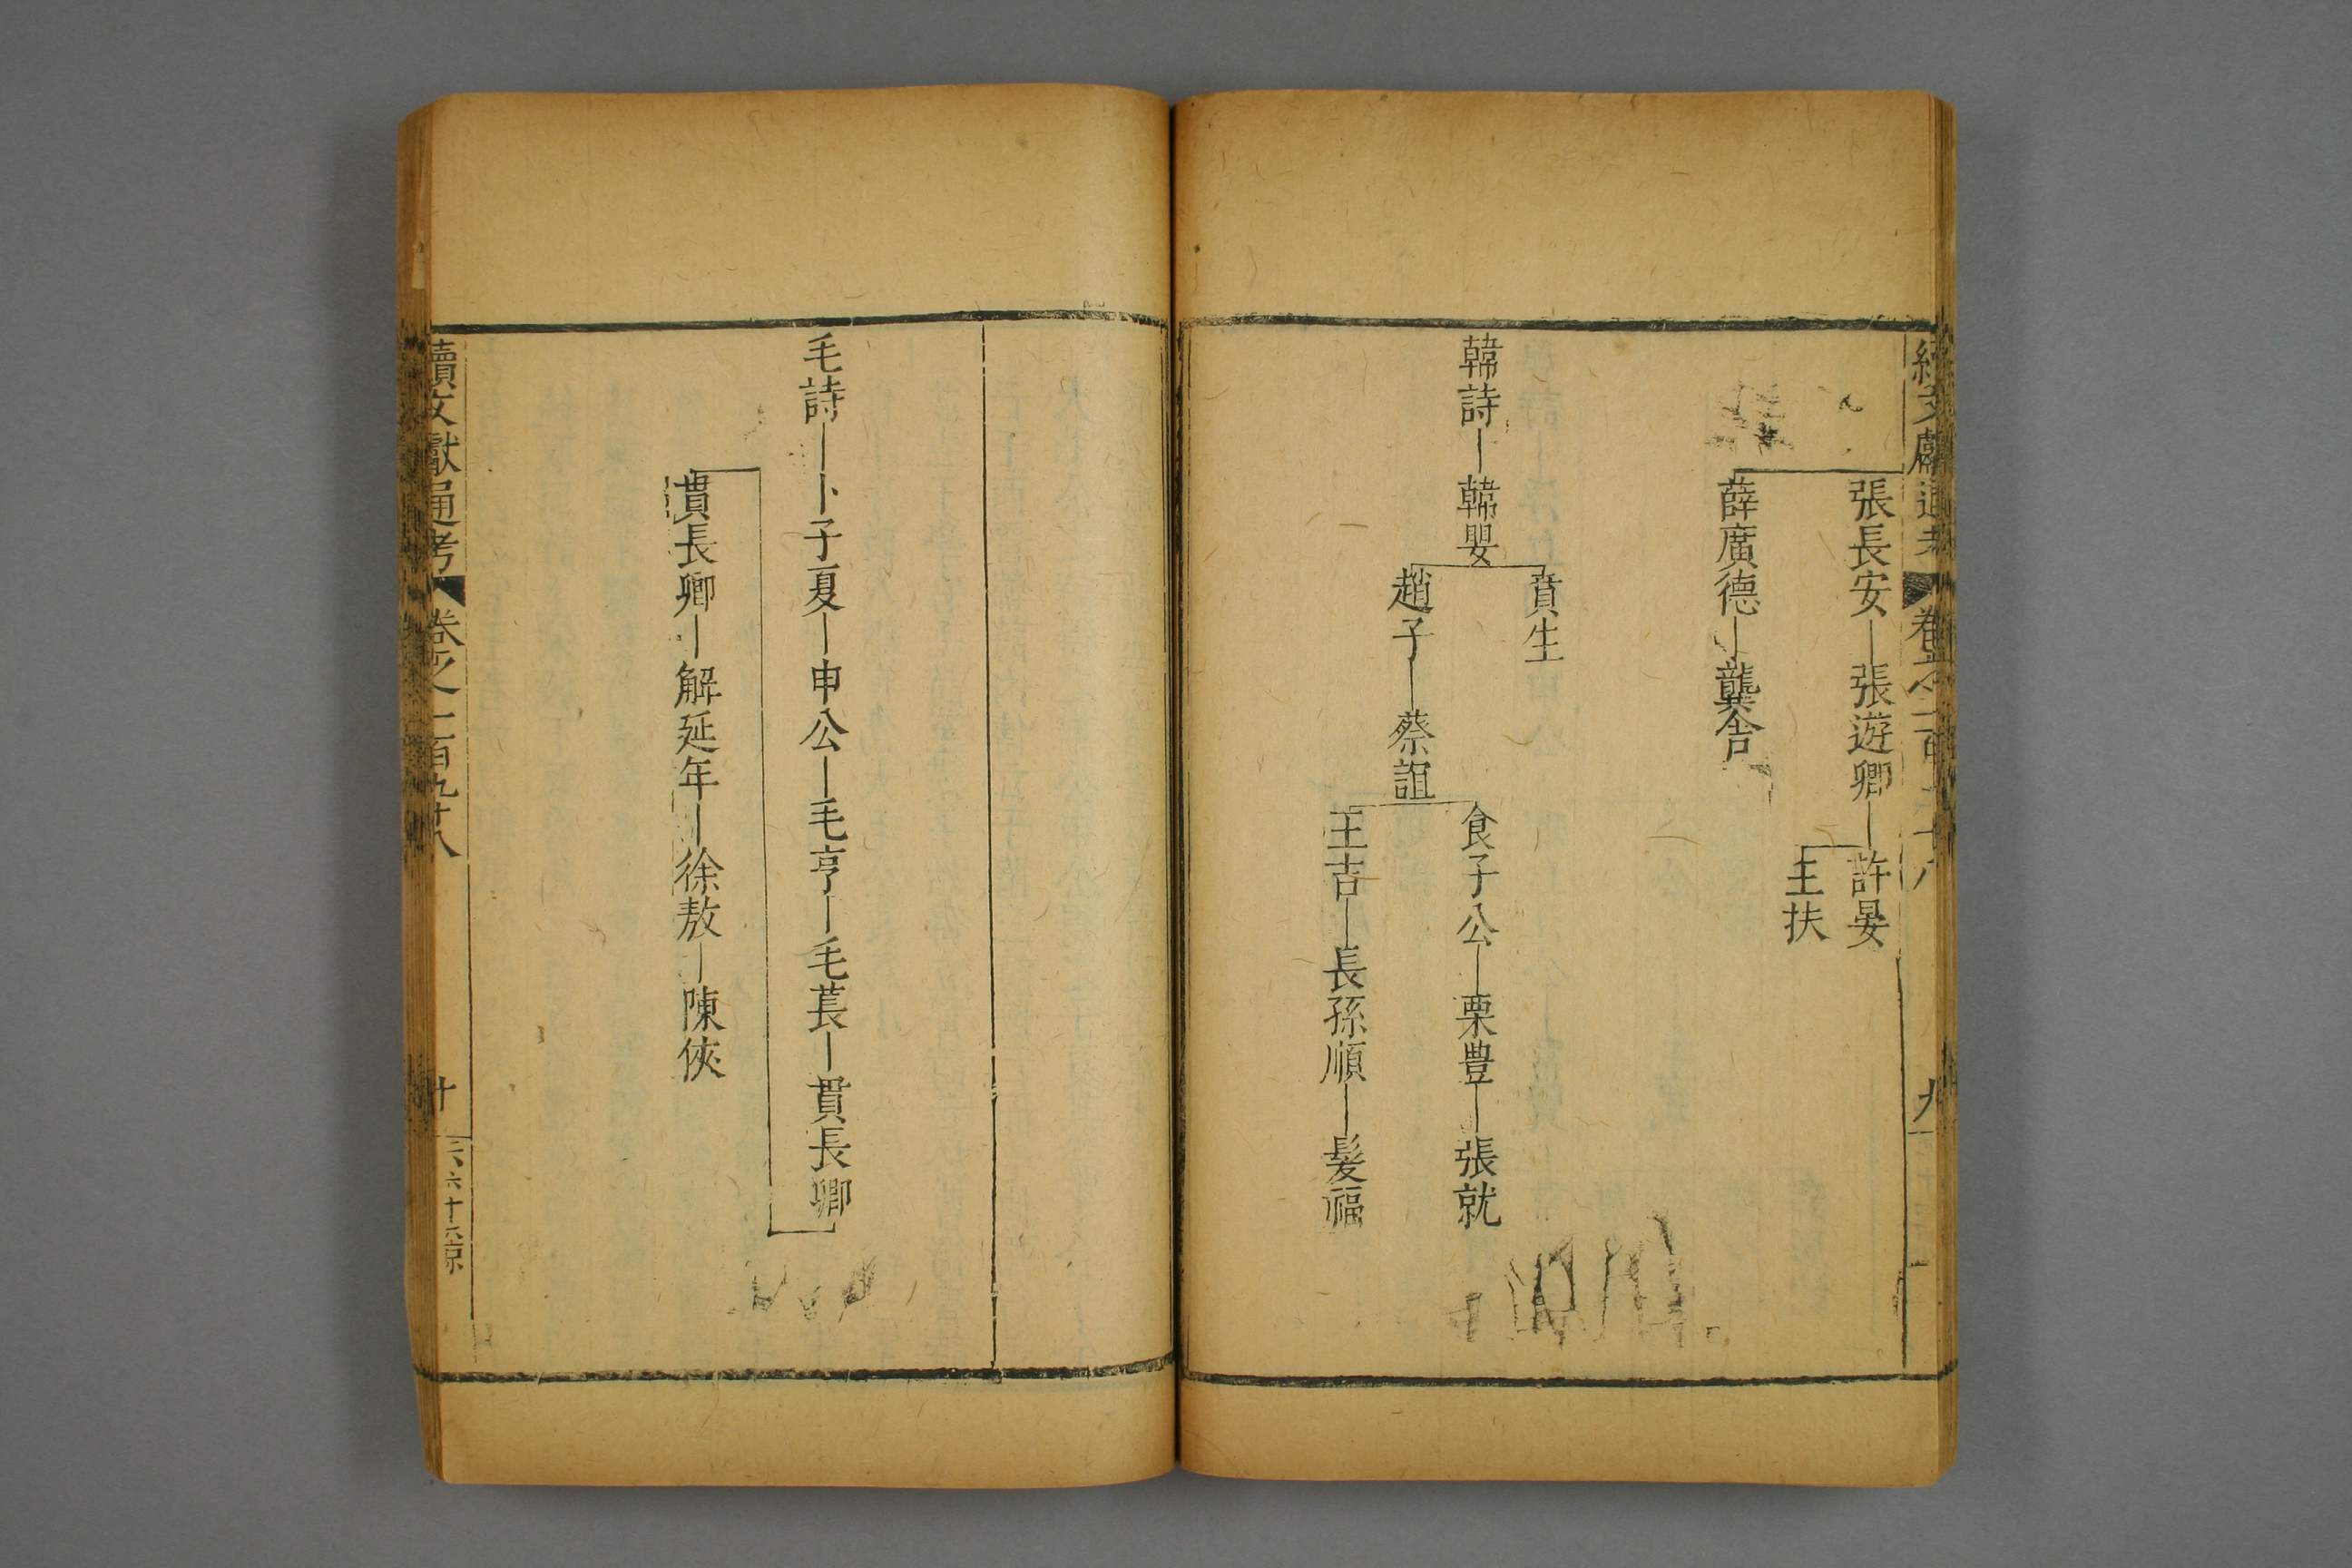 張長安 張遊卿 許晏
王扶
薛廣德 龔舍
賁生
韓詩 韓嬰
食子公 栗豊 張就
趙子 蔡誼
王吉 長孫順 髮福
毛詩 卜子夏 申公 毛亨 毛萇 貫長卿
貫長卿 解延年 徐敖 陳俠
續文獻通考 卷之一百九十八
十